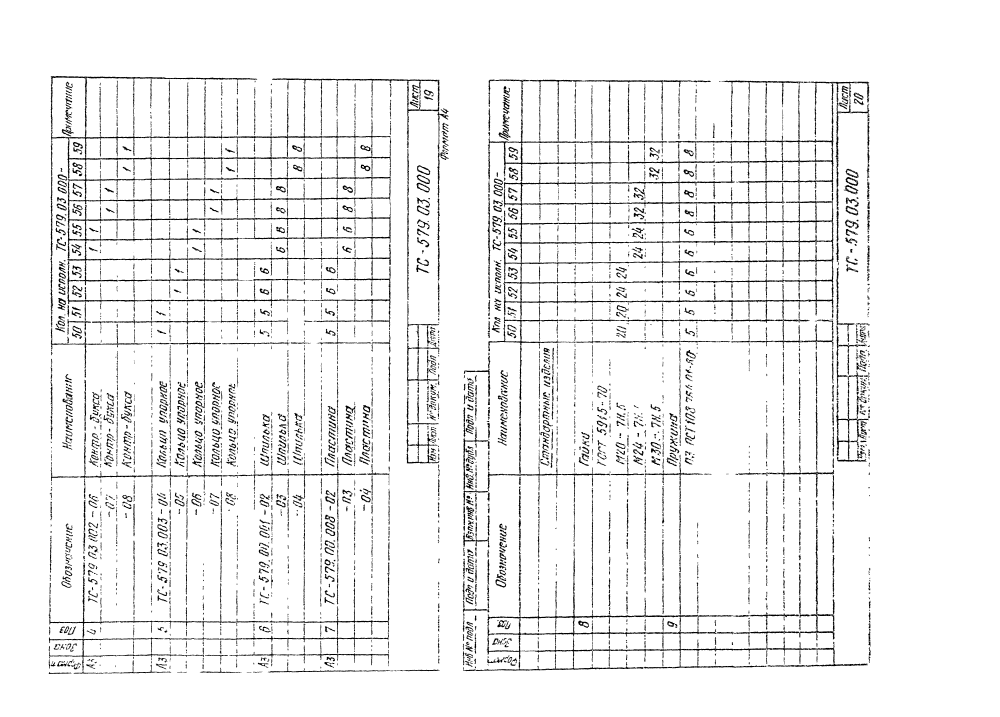 Формат Зона Поз Обозначение Наименование Кол на исполн. ТС-579.03.000- Примечание
50 51 52 53 54 55 56 57 58 59
А3 4 ТС-579.03.002-06 Контр-букса 1 1
-07 Контр-букса 1 1
-08 Контр-букса 1 1
А3 5 ТС-579.03.003-04 Кольцо упорное 1 1
-05 Кольцо упорное 1 1
-06 Кольцо упорное 1 1
-07 Кольцо упорное 1 1
-08 Кольцо упорное 1 1
А3 6 ТС-579.00.001-02 Шпилька 5 5 6 6
-03 Шпилька 6 6 8 8
-04 Шпилька 8 8
А3 7 ТС-579.00.008-02 Пластина 5 5 6 6
-03 Пластина 6 6 8 8
-04 Пластина 8 8
Подп. Дата
ТС-579.03.000
Лист
19
Формат А4
Инв № подл Подп и дата Взам инв № Инв № дубл Подп и дата
Формат Зона Поз Обозначение Наименование Кол на исполн. ТС-579.03.000- Примечание
50 51 52 53 54 55 56 57 58 59
Стандартные изделия
8 Гайка
ГОСТ 5915-70
М20-7Н.5 20 20 24 24
М24-7Н. 24 24 32 32
М30-7Н.5 32 32
9 Пружина
5 6 6 6 6 6 8 8 8 8
ТС-579.03.000
Лист
20